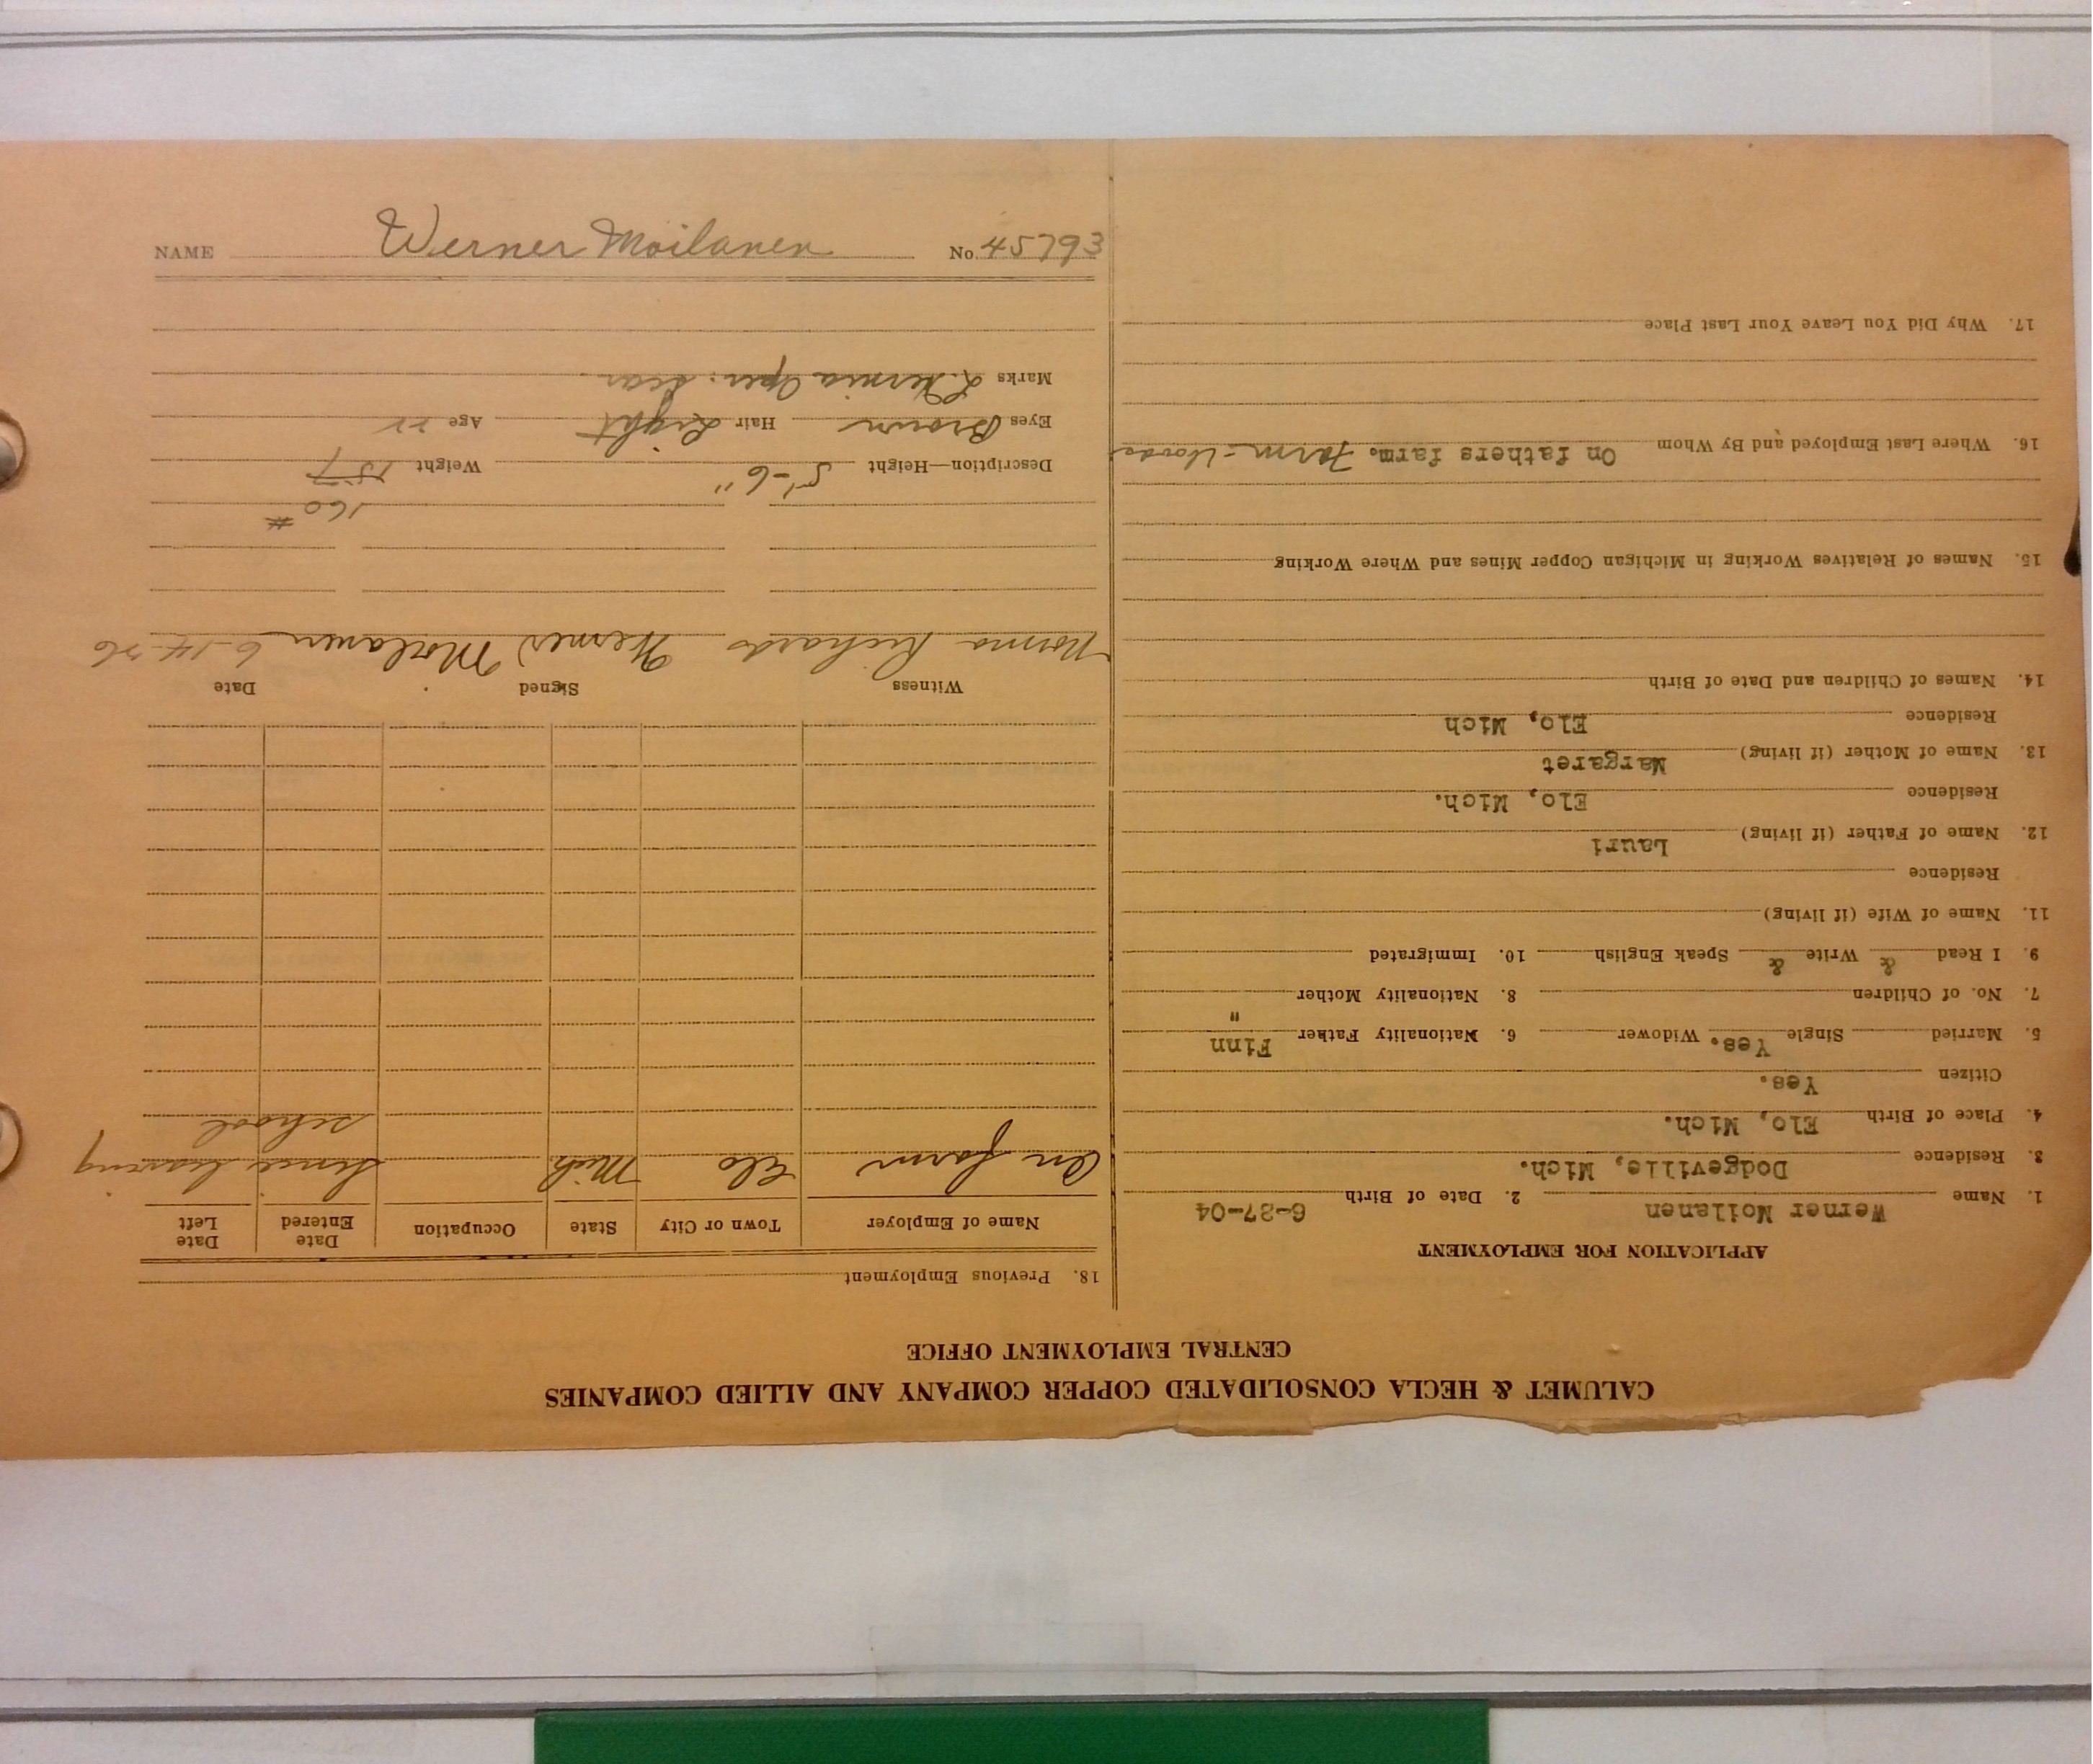 CALUMET & HECLA CONSOLIDATED COPPER COMPANY AND ALLIED COMPANIES
CENTRAL EMPLOYMENT OFFICE
APPLICATION FOR EMPLOYMENT
1. Name Werner Moilanen 2. Date of Birth 6-27-04
3. Residence Dodgeville, Mich.
4. Place of Birth Elo, Mich.
Citizen Yes.
5. Married Single Yes. Widower 6. Nationality Father Finn
7. No. of Children 8. Nationality Mother "
9. I Read & Write & Speak English 10. Immigrated
11. Name of Wife (if living)
Residence
12. Name of Father (if living) Lauri
Residence Elo, Mich.
13. Name of Mother (if living) Margaret
Residence Elo, Mich
14. Names of Children and Date of Birth
15. Names of Relatives Working in Michigan Copper Mines and Where Working
16. Where Last Employed and By Whom On fathers farm. Farm - Woods
17. Why Did You Leave Your Last Place
18. Previous Employment
Name of Employer Town or City State Occupation Date Entered Date Left
On farm Elo Mich Since leaving
school
Witness Signed Date
Norma Richards Werner Moilanen 6-14-26
160 #
Description—Height 5'-6" Weight 157
Eyes Brown Hair Light Age 22
Marks L. Hernia Oper: Scar
NAME Werner Moilanen No. 45793